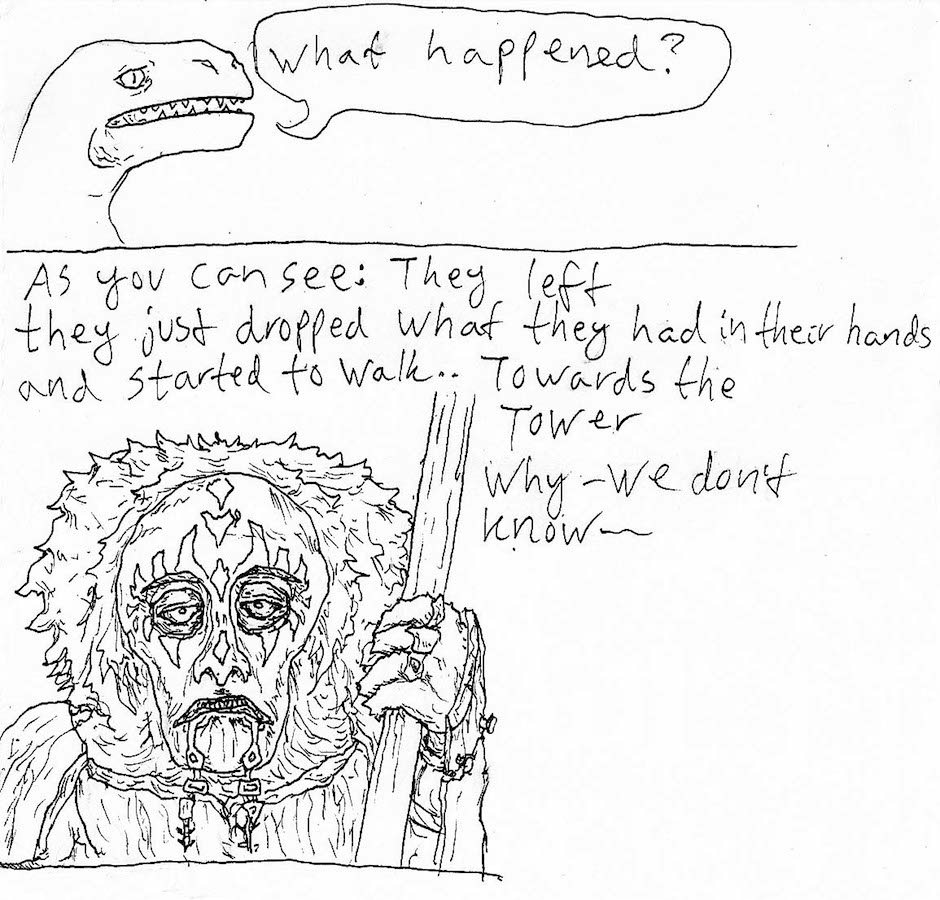 What happened?
As you can see: They left
they just dropped what they had in their hands
and started to walk.. Towards the
Tower
Why - we don't
know~